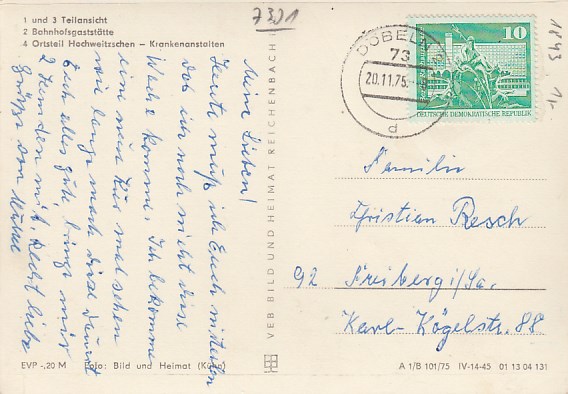 1 und 3 Teilansicht
2 Bahnhofsgaststätte
4 Ortsteil Hochweitzschen – Krankenanstalten
7301
Meine Lieben!
Heute muß ich Euch mitteilen
daß ich noch nicht diese
Woche komme. Ich bekomme
eine neue Kur mal sehen
wie lange mach diese dauert
Euch alles gute bringt mir
2 Hemden mit. Recht liebe
Grüße von
EVP -,20 M Foto: Bild und Heimat (Kühn)
VEB BILD UND HEIMAT REICHENBACH
DÖBELN
73
20.11.75
d
10
DEUTSCHE DEMOKRATISCHE REPUBLIK
1843 1,-
Familie
Christian Resch
92 Freiberg i/Sa.
Karl-Kögelstr. 88
A 1/B 101/75 IV-14-45 01 13 04 131